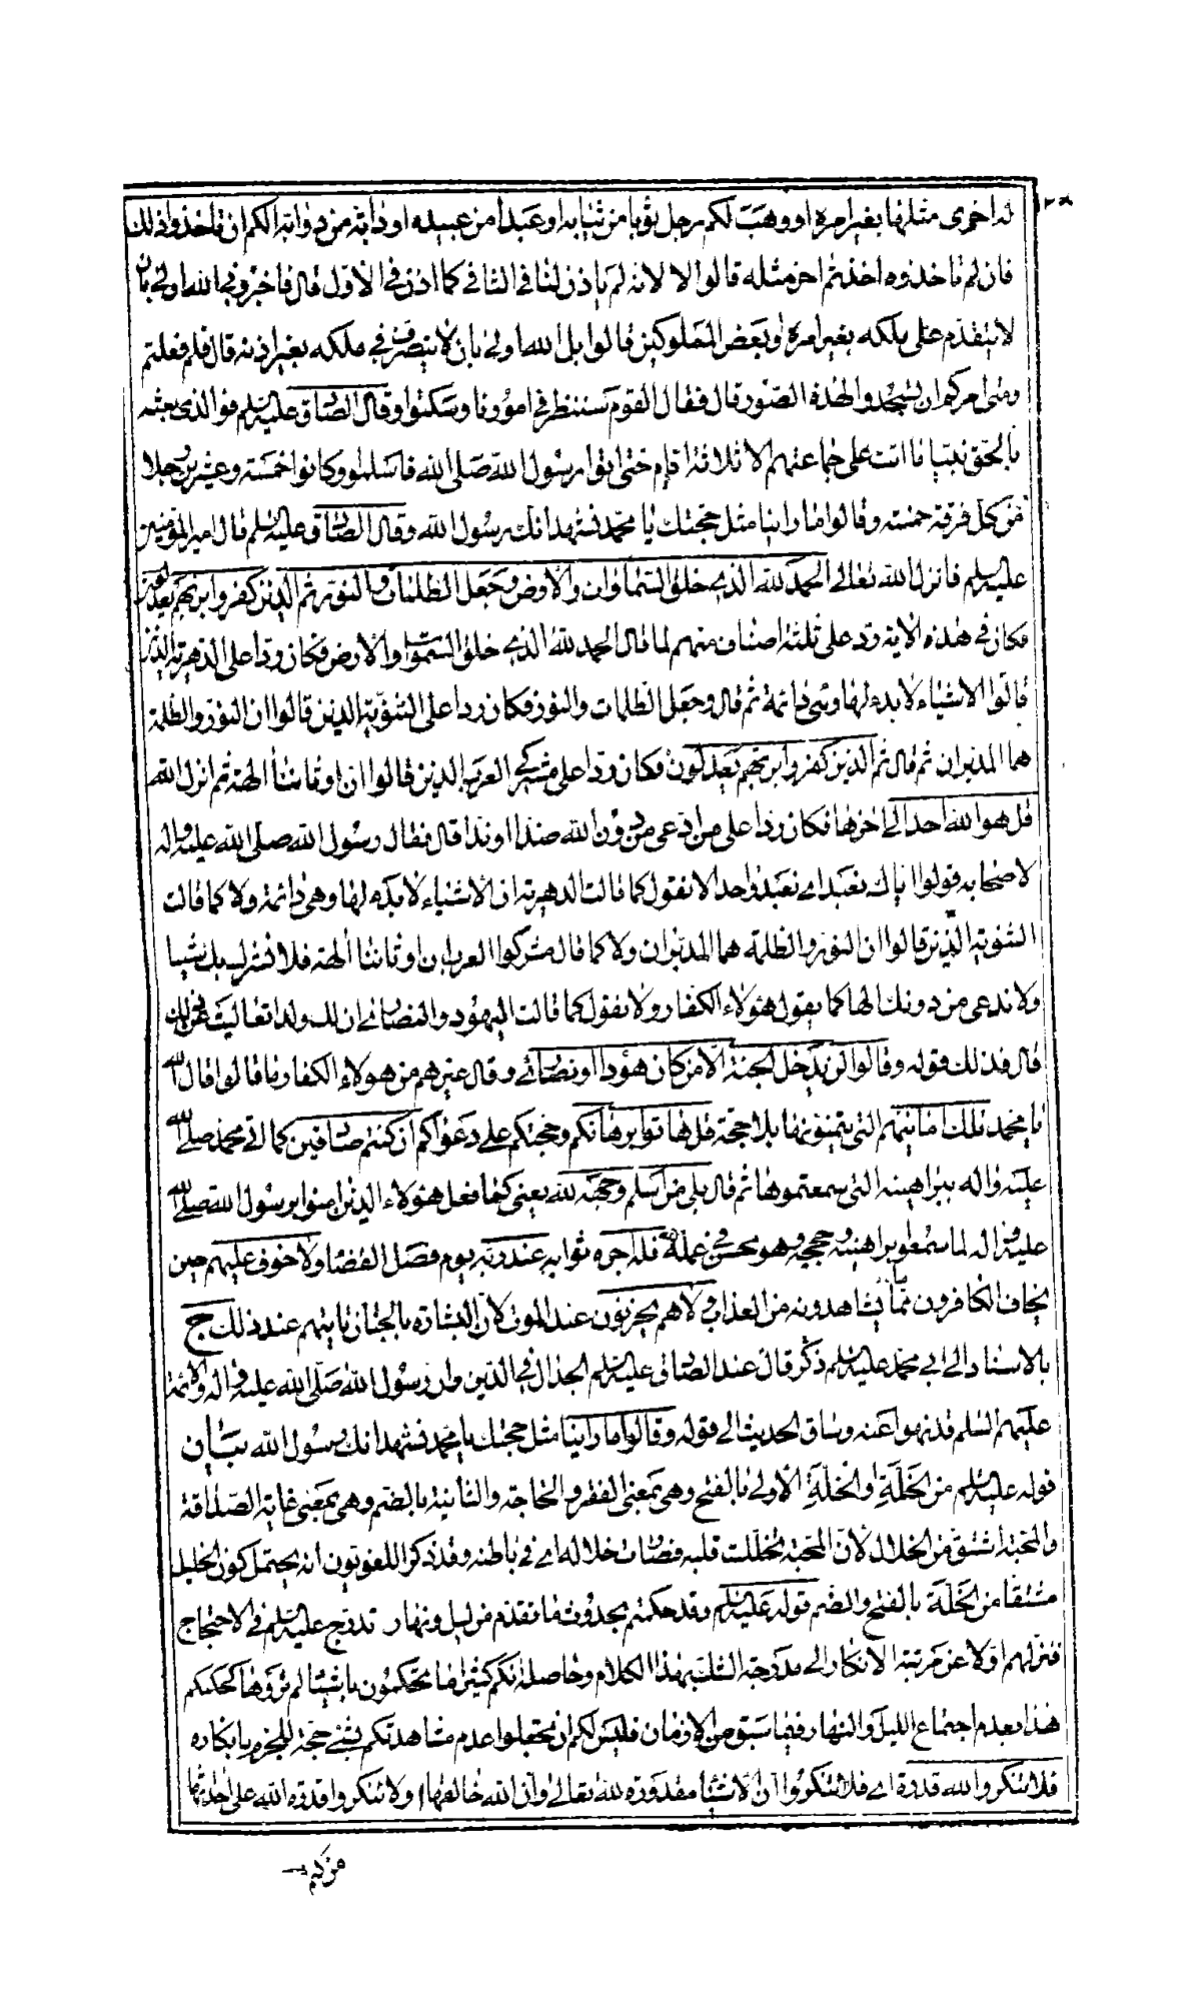 له اخرى مثلها بغير امره او وهب لكم رجل ثوبا من ثيابه او عبدا من عبيده او دابة من دوابه الكم ان تاخذوا ذلك
فان لم تاخذوه اخذتم اخر مثله قالوا لا لانه لم ياذن لنا في الثاني كما اذن في الاول قال فاخبروني الله اولى بان
لا يتقدم على ملكه بغير امره او بعض المملوكين قالوا بل الله اولى بان لا يتصرف في ملكه بغير اذنه قال فلم فعلتم
ومتى امركم ان تسجدوا لهذه الصور قال فقال القوم سننظر في امورنا وسكتوا وقال الصادق عليه السلم فو الذي بعثه
بالحق نبيا ما اتت على جماعتهم الا ثلاثة ايام حتى اتوا رسول الله صلى الله فاسلموا وكانوا خمسة وعشرين رجلا
من كل فرقة خمسة وقالوا ما راينا مثل حجتك يا محمد نشهد انك رسول الله وقال الصادق عليه السلم قال امير المؤمنين
عليه السلم فانزل الله تعالى الحمد لله الذي خلق السماوات والارض وجعل الظلمات والنور ثم الذين كفروا بربهم يعدلون
فكان في هذه الاية رد على ثلثة اصناف منهم لما قال الحمد لله الذي خلق السموات والارض فكان ردا على الدهرية الذين
قالوا الاشياء لا بدء لها وهي دائمة ثم قال وجعل الظلمات والنور فكان ردا على الثنوية الذين قالوا ان النور والظلمة
هما المدبران ثم قال ثم الذين كفروا بربهم يعدلون فكان ردا على مشركي العرب الذين قالوا ان اوثاننا الهة ثم انزل الله
قل هو الله احد الى اخرها فكان ردا على من ادعى من دون الله ضدا او ندا قال فقال رسول الله صلى الله عليه واله
لاصحابه قولوا اياك نعبد اي نعبد واحدا لا نقول كما قالت الدهرية ان الاشياء لا بدء لها وهي دائمة ولا كما قالت
الثنوية الذين قالوا ان النور والظلمة هما المدبران ولا كما قال مشركوا العرب ان اوثاننا الهة فلا نشرك بك شيئا
ولا ندعي من دونك الها كما يقول هؤلاء الكفار ولا نقول كما قالت اليهود والنصارى ان لك ولدا تعاليت عن ذلك
قال فذلك قوله وقالوا لن يدخل الجنة الا من كان هودا او نصارى وقال غيرهم من هولاء الكفار ما قالوا قال الله
يا محمد تلك امانيهم التي يتمنونها بلا حجة قل هاتوا برهانكم وحجتكم على دعواكم ان كنتم صادقين كما اتى محمد صلى الله
عليه واله ببراهينه التي سمعتموها ثم قال بلى من اسلم وجهه لله يعني كما فعل هؤلاء الذين امنوا برسول الله صلى الله
عليه واله لما سمعوا براهينه وحججه وهو محسن في عمله فله اجره ثوابه عند ربه يوم فصل القضاء ولا خوف عليهم حين
يخاف الكافرون مما يشاهدونه من العذاب ولا هم يحزنون عند الموت لان البشارة بالجنان تاتيهم عند ذلك ج
بالاسناد الى ابي محمد عليه السلم ذكر قال عند الصادق عليه السلم الجدال في الدين وان رسول الله صلى الله عليه واله والائمة
عليهم السلم قد نهوا عنه وساق الحديث الى قوله وقالوا ما راينا مثل حجتك يا محمد نشهد انك رسول الله بيان
قوله عليه السلم من الخلة او الخلة الاولى بالفتح وهي بمعنى الفقر والحاجة والثانية بالضم وهي بمعنى غاية الصداقة
والمحبة اشتق من الخلال لان المحبة تخللت قلبه فصارت خلاله اي في باطنه وقد ذكر اللغويون انه يحتمل كون الخليل
مشتقا من الخلة بالفتح والضم قوله عليه السلم وقد حكمتم بحدوث ما تقدم من ليل ونهار تدرج عليه السلم في الاحتجاج
فنزلهم اولا عن مرتبة الانكار الى مدرجة الشك بهذا الكلام وحاصله انكم كثيرا ما تحكمون باشياء لم تروها كحكمكم
هذا بعدم اجتماع الليل والنهار فيما سبق من الازمان فليس لكم ان تجعلوا عدم مشاهدتكم لشيء حجة للجزم بانكاره
فلا تنكروا لله قدرة اي فلا تنكروا ان الاشياء مقدورة لله تعالى وان الله خالقها او لا تنكروا قدرة الله على احداثها
من كتم